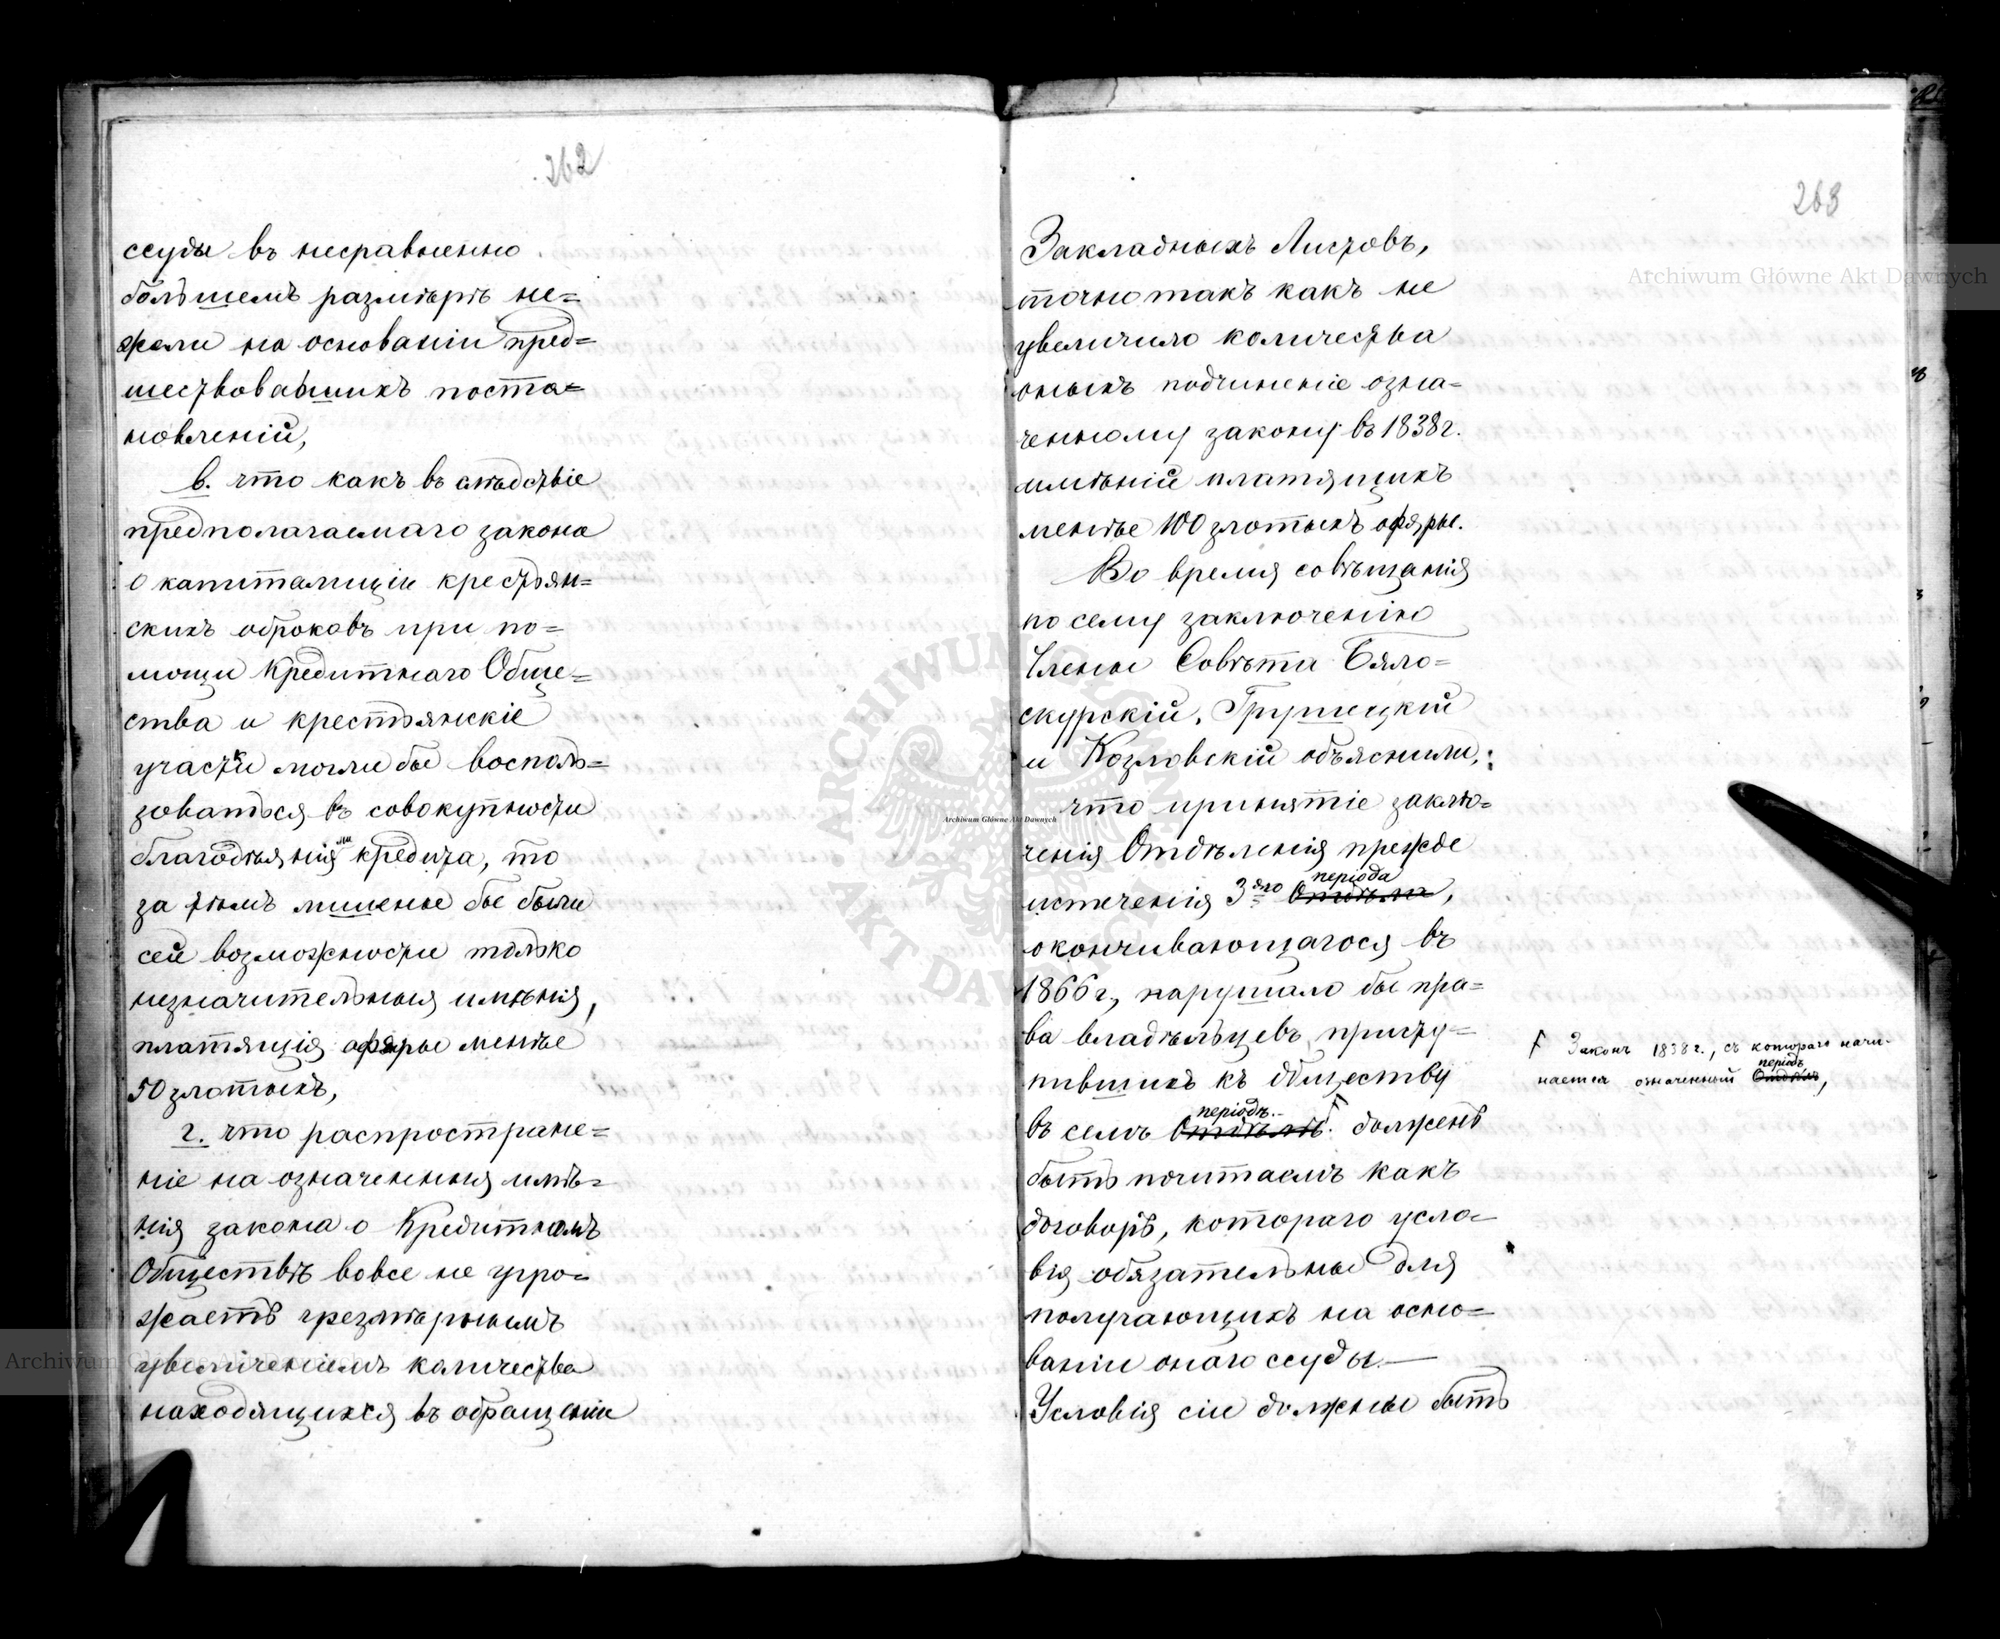 262
ссуды въ несравненно
большемъ размѣрѣ не=
жели на основаніи пред=
шествовавшихъ поста=
новленій,
в. что какъ въ слѣдствіе
предполагаемаго закона
о капитализаціи крестьян=
скихъ оброковъ при по=
мощи Кредитнаго Обще=
ства и крестьянскіе
участки могли бы восполь=
зоваться въ совокупности
благодѣяніями кредита, то
за тѣмъ лишены бы были
сей возможности только
незначительныя имѣнія,
платящія офяры менѣе
50 злотыхъ,
г. что распростране=
ніе на означенныя имѣ=
нія закона о Кредитномъ
Обществѣ вовсе не угро=
жаетъ чрезмѣрнымъ
увеличеніемъ количества
находящихся въ обращеніи
263
Закладныхъ Листовъ,
точно такъ какъ не
увеличило количества
оныхъ подчиненіе озна=
ченному закону въ 1838 г.
имѣній платящихъ
менѣе 100 злотыхъ офяры.
Во время совѣщанія
по сему заключенію
Члены Совѣта Бяло=
скурскій, Грушецкій
и Козловскій объяснили,:
что принятіе заклю=
ченія Отдѣленія прежде
періода
истеченія 3го Отдѣла,
окончивающагося въ
1866 г., нарушало бы пра=
ва владѣльцевъ, присту=
пившихъ къ обществу
періодѣ.
въ семъ Отдѣлѣ. долженъ
быть почитаемъ какъ
договоръ, котораго усло=
вія обязательны для
получающихъ на осно=
ваніи онаго ссуды.—
Условія сіи должны быть
Законъ 1838 г., съ котораго начи-
періодъ
нается означенный Отдѣлъ,
Archiwum Główne Akt Dawnych
Archiwum Główne Akt Dawnych
Archiwum Główne Akt Dawnych
ARCHIWUM GŁÓWNE AKT DAWNYCH